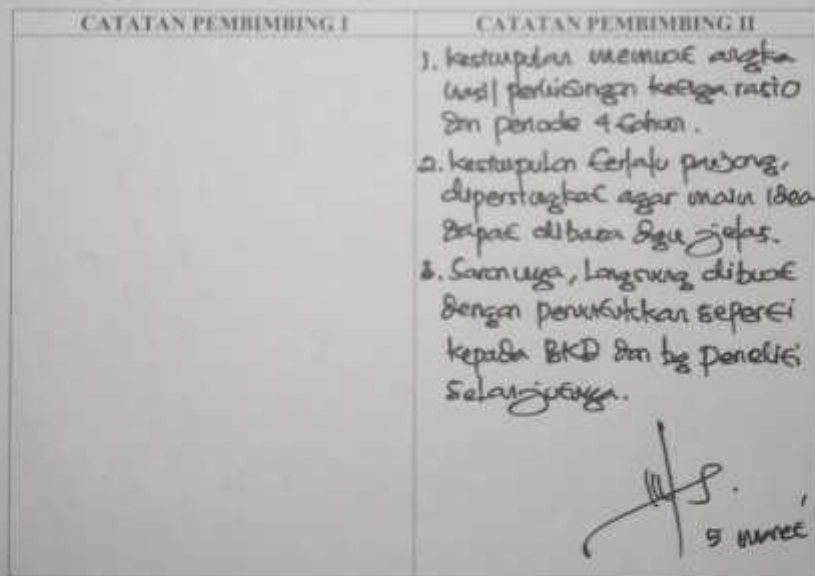 CATATAN PEMBIMBING I
CATATAN PEMBIMBING II
1. kesimpulan memuat angka
hasil perhitungan ketiga rasio
dan periode 4 tahun.
2. kesimpulan terlalu panjang,
dipersingkat agar main idea
dapat dibaca dgn jelas.
3. Sarannya, Langsung dibuat
dengan penunjukkan seperti
kepada BKD dan bg peneliti
Selanjutnya.
5 maret